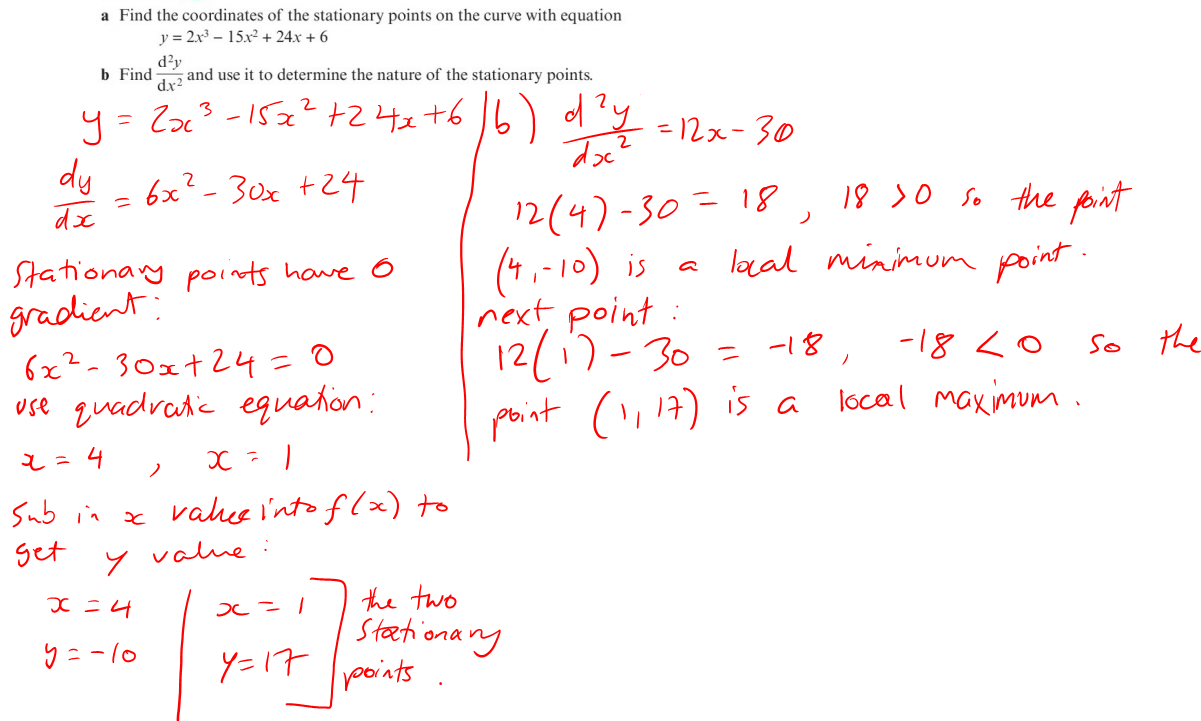 a Find the coordinates of the stationary points on the curve with equation
y = 2x³ – 15x² + 24x + 6
b Find d²y/dx² and use it to determine the nature of the stationary points.
y = 2x³ - 15x² + 24x + 6
dy/dx = 6x² - 30x + 24
Stationary points have 0
gradient:
6x² - 30x + 24 = 0
use quadratic equation:
x = 4 , x = 1
Sub in x value into f(x) to
get y value:
x = 4
y = -10
x = 1
y = 17
the two
stationary
points.
b) d²y/dx² = 12x - 30
12(4) - 30 = 18 , 18 > 0 so the point
(4, -10) is a local minimum point.
next point:
12(1) - 30 = -18 , -18 < 0 so the
point (1, 17) is a local maximum.